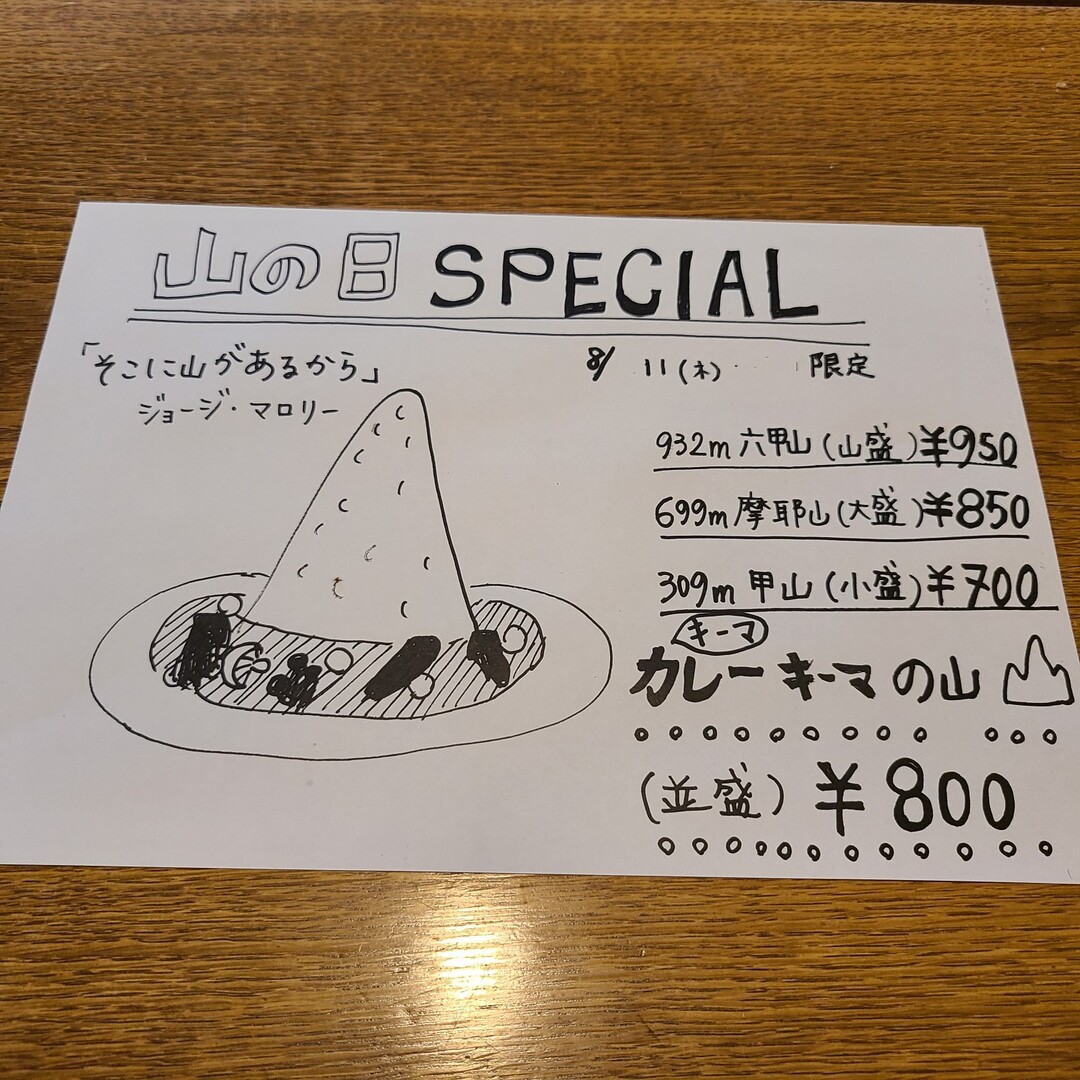 山の日 SPECIAL
「そこに山があるから」
ジョージ・マロリー
8/11(木) 限定
932m 六甲山(山盛)¥950
699m 摩耶山(大盛)¥850
309m 甲山(小盛)¥700
キーマ
カレーキーマの山
(並盛)¥800